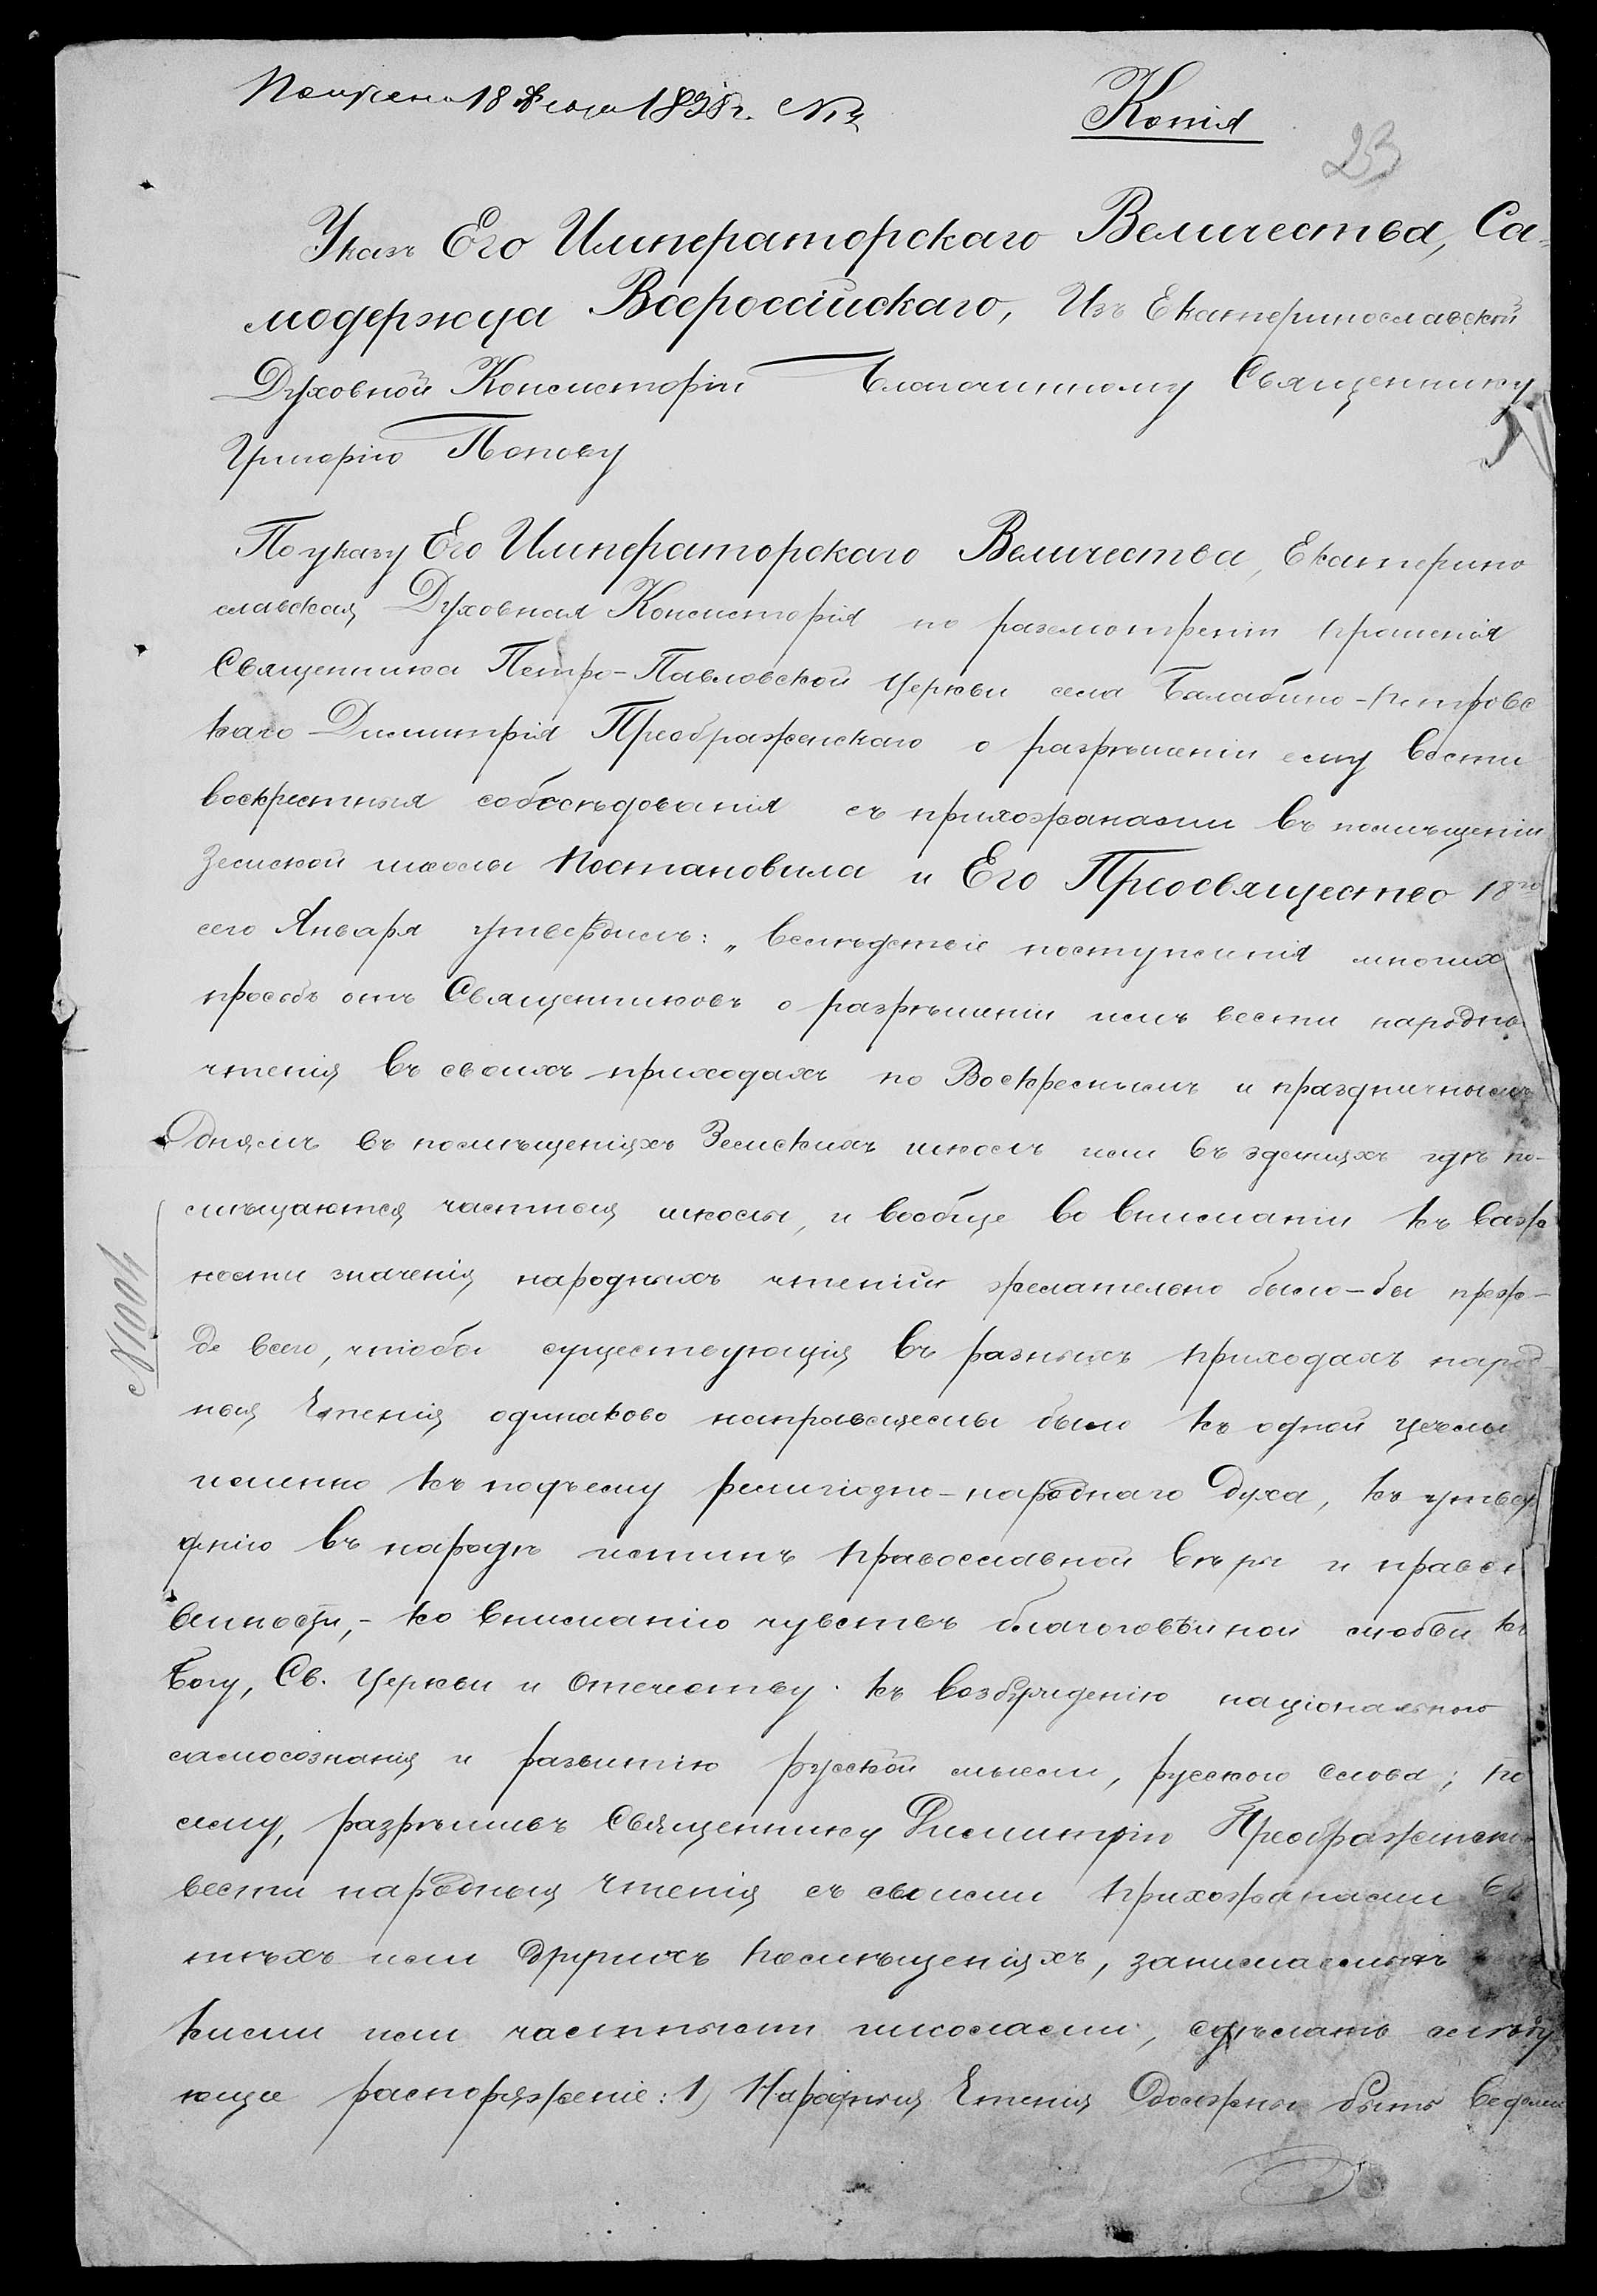 Получено 18 1898 г. №
Копія
23
Указъ Его Императорскаго Величества, Са-
модержца Всероссійскаго, Изъ Екатеринославской
Духовной Консисторіи Благочинному Священнику
Григорію Попову
По указу Его Императорскаго Величества, Екатерино
славская Духовная Консисторія по разсмотреніи прошенія
Священника Петро-Павловской Церкви села Балабино-Петровс
каго Димитрія Преображенскаго о разрѣшеніи ему вести
воскресныя собесѣдованія съ прихожанами въ помѣщеніи
Земской школы Постановила и Его Преосвящество 18го
сего Января утвердилъ: „вслѣдствіе поступленія многихъ
просьбъ отъ Священниковъ о разрѣшеніи имъ вести народны
чтенія въ своихъ приходахъ по Воскреснымъ и праздничнымъ
днямъ въ помѣщеніяхъ Земскихъ школъ или въ зданіяхъ гдѣ по-
мѣщаются частныя школы, и вообще во вниманіи къ важ
ности значенія народныхъ чтеній желательно было-бы преж-
де всего, чтобы существующія въ разныхъ приходахъ народ-
ныя Чтенія одинаково направляемы были къ одной цѣли
именно къ подъему религіозно-народнаго духа, къ утвер
жнію въ народѣ истинъ православной вѣры и нравст
венности, - ко вниманію чувствъ благоговѣйной любви къ
Богу, Св. Церкви и Отечеству. къ возбужденію національного
самосознанія и развитію русской мысли, русского слова; по
сему, разрѣшивъ Священнику Димитрію Преображенско
вести народныя Чтенія съ своими прихожанами въ
тѣхъ или другихъ помѣщеніяхъ, занимаемыхъ
кими или частными школами, сдѣлать слѣду
ющее распоряженіе: 1) Народныя Чтенія должны быть ведомы
№1004